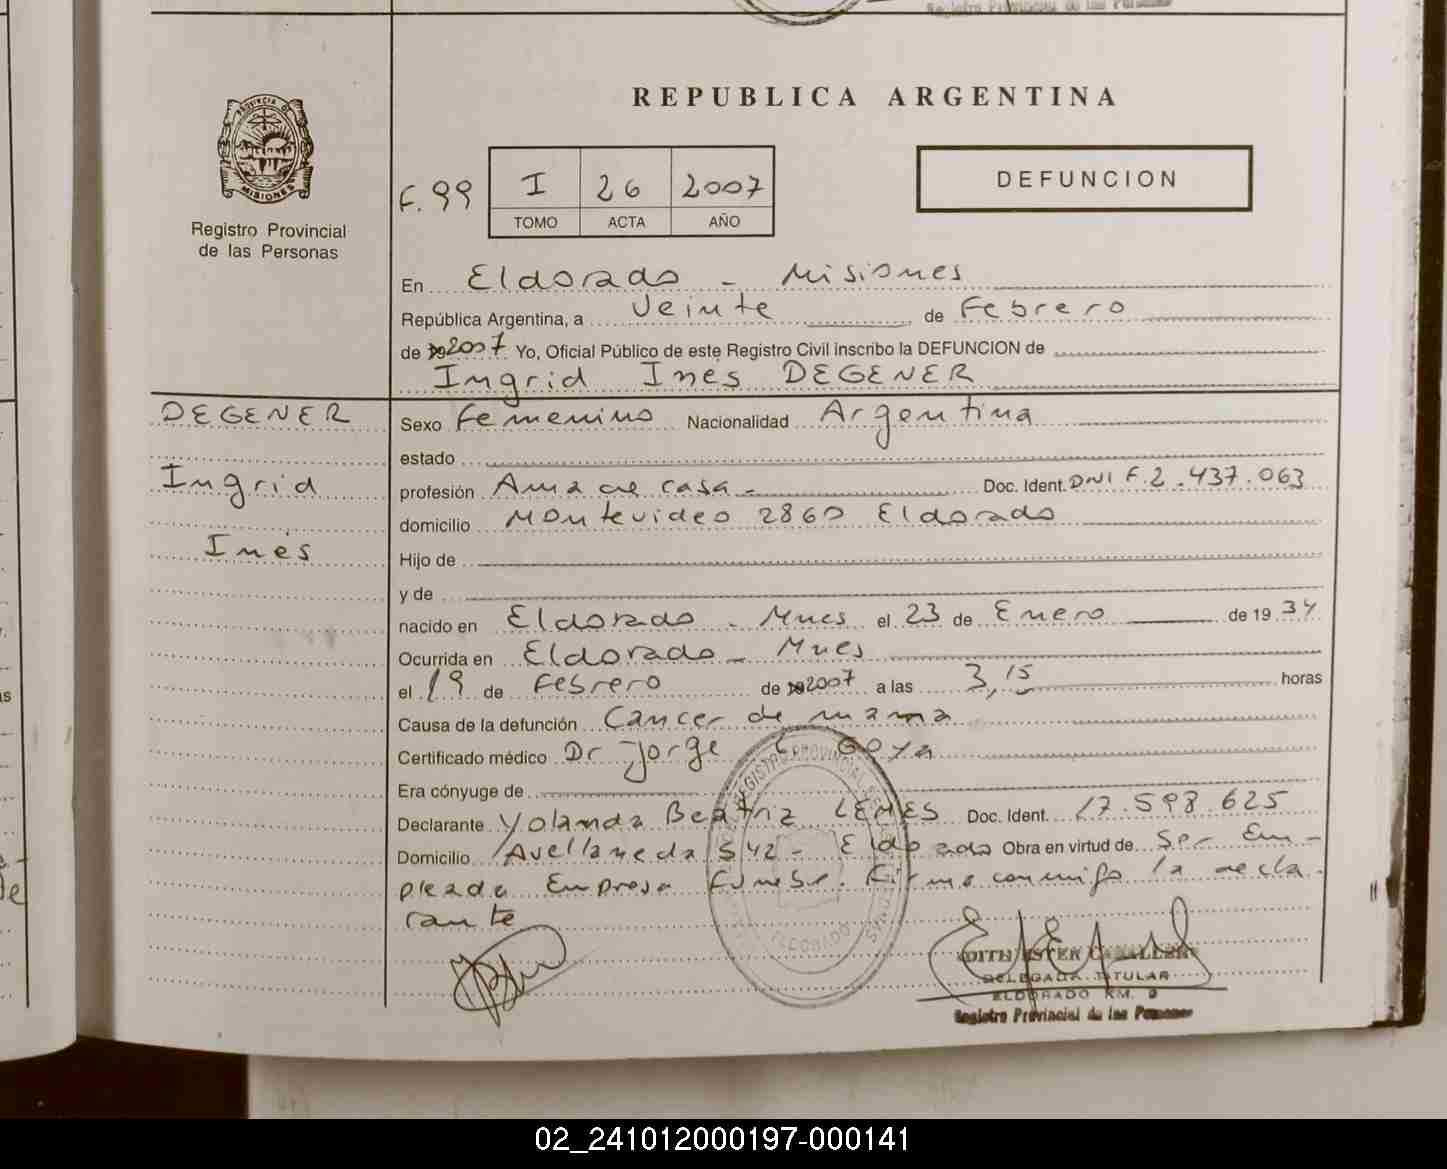 Registro Provincial de las Personas
REPUBLICA ARGENTINA
PROVINCIA DE
MISIONES
Registro Provincial
de las Personas
F. 99
I 26 2007
TOMO ACTA AÑO
DEFUNCION
En Eldorado - Misiones
República Argentina, a Veinte de Febrero
de 2007 Yo, Oficial Público de este Registro Civil inscribo la DEFUNCION de
Ingrid Inés DEGENER
DEGENER
Ingrid
Inés
Sexo Femenino Nacionalidad Argentina
estado
profesión Ama de casa - Doc. Ident. DNI F. 2.437.063
domicilio Montevideo 2860 Eldorado
Hijo de
y de
nacido en Eldorado - Mnes el 23 de Enero de 1934
Ocurrida en Eldorado - Mnes
el 19 de Febrero de 2007 a las 3,15 horas
Causa de la defunción Cancer de mama
Certificado médico Dr Jorge Goya
Era cónyuge de
Declarante Yolanda Beatriz LEMES Doc. Ident. 17.598.625
Domicilio Avellaneda 542 - Eldorado Obra en virtud de Ser Em-
pleada Empresa Funebr. Firma conmigo la decla-
rante
REGISTRO PROVINCIAL DE LAS PERSONAS
ELDORADO
EDITH ESTER CABALLERO
DELEGADA TITULAR
ELDORADO KM. 9
Registro Provincial de las Personas
02_241012000197-000141